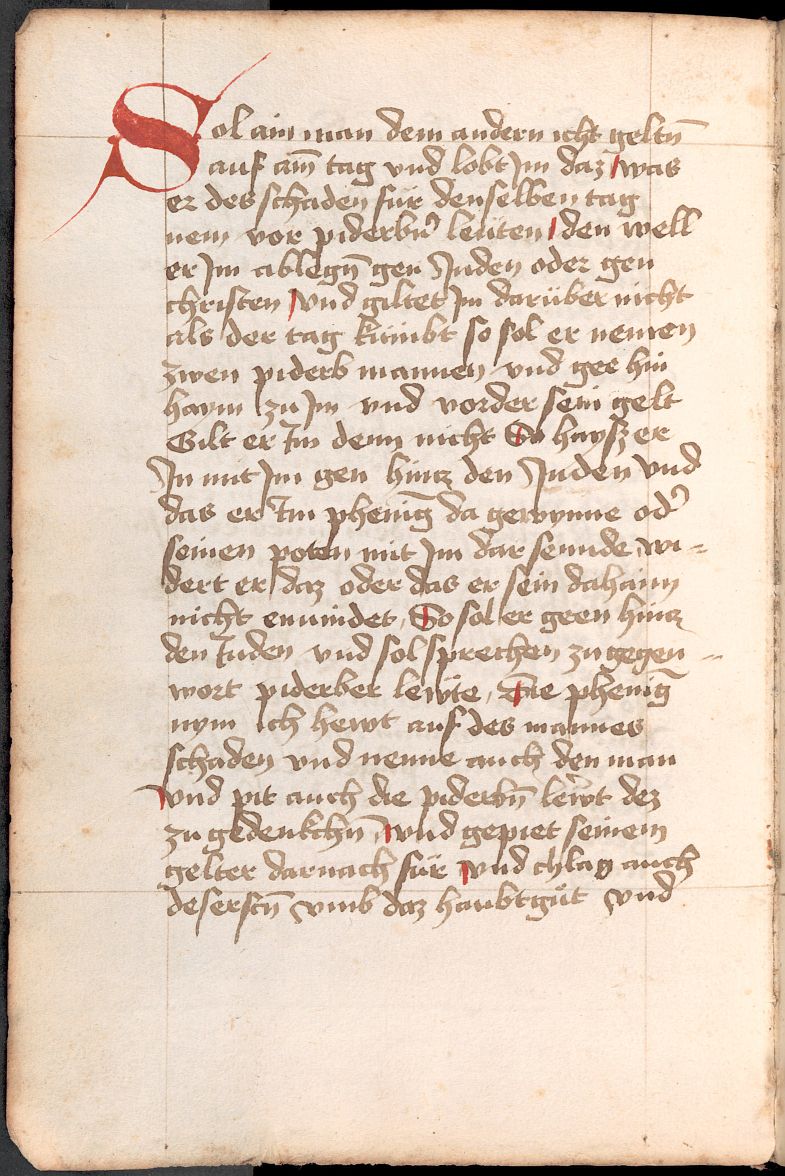 Sol ain man dem andern icht geltn̄
auf ain̄ tag vnd lobt Jm daz was
er des schaden für denselben tag
nem vor piderbn̄ leüten den well
er Jm ablegn̄ gen Juden oder gen
christen vnd giltet Jm darüber nicht
als der tag kümbt so sol er nemen
zwen piderb mannen vnd gee hin
haym zu Jm vnd vorder sein gelt
Gilt er Im denn nicht So haysz er
Jn mit Jm gen hincz den Juden vnd
das er Im pheniḡ da gewynne od̓
seinen poten mit Jm dar sennde wi-
dert er daz oder das er sein dahaim
nicht enuindet, So sol er geen hincz
den Juden vnd sol sprechen zu gegen-
wort piderber lewte, Die pheniḡ
nym ich hewt auf des mannes
schaden vnd nenne auch den man
vnd pit auch die piderbn̄ lewt dez
zu gedenkchn̄, vnd gepiet seinem
gelter darnach für vnd chlag auch
des ersten̄ vmb daz haubtgůt vnd